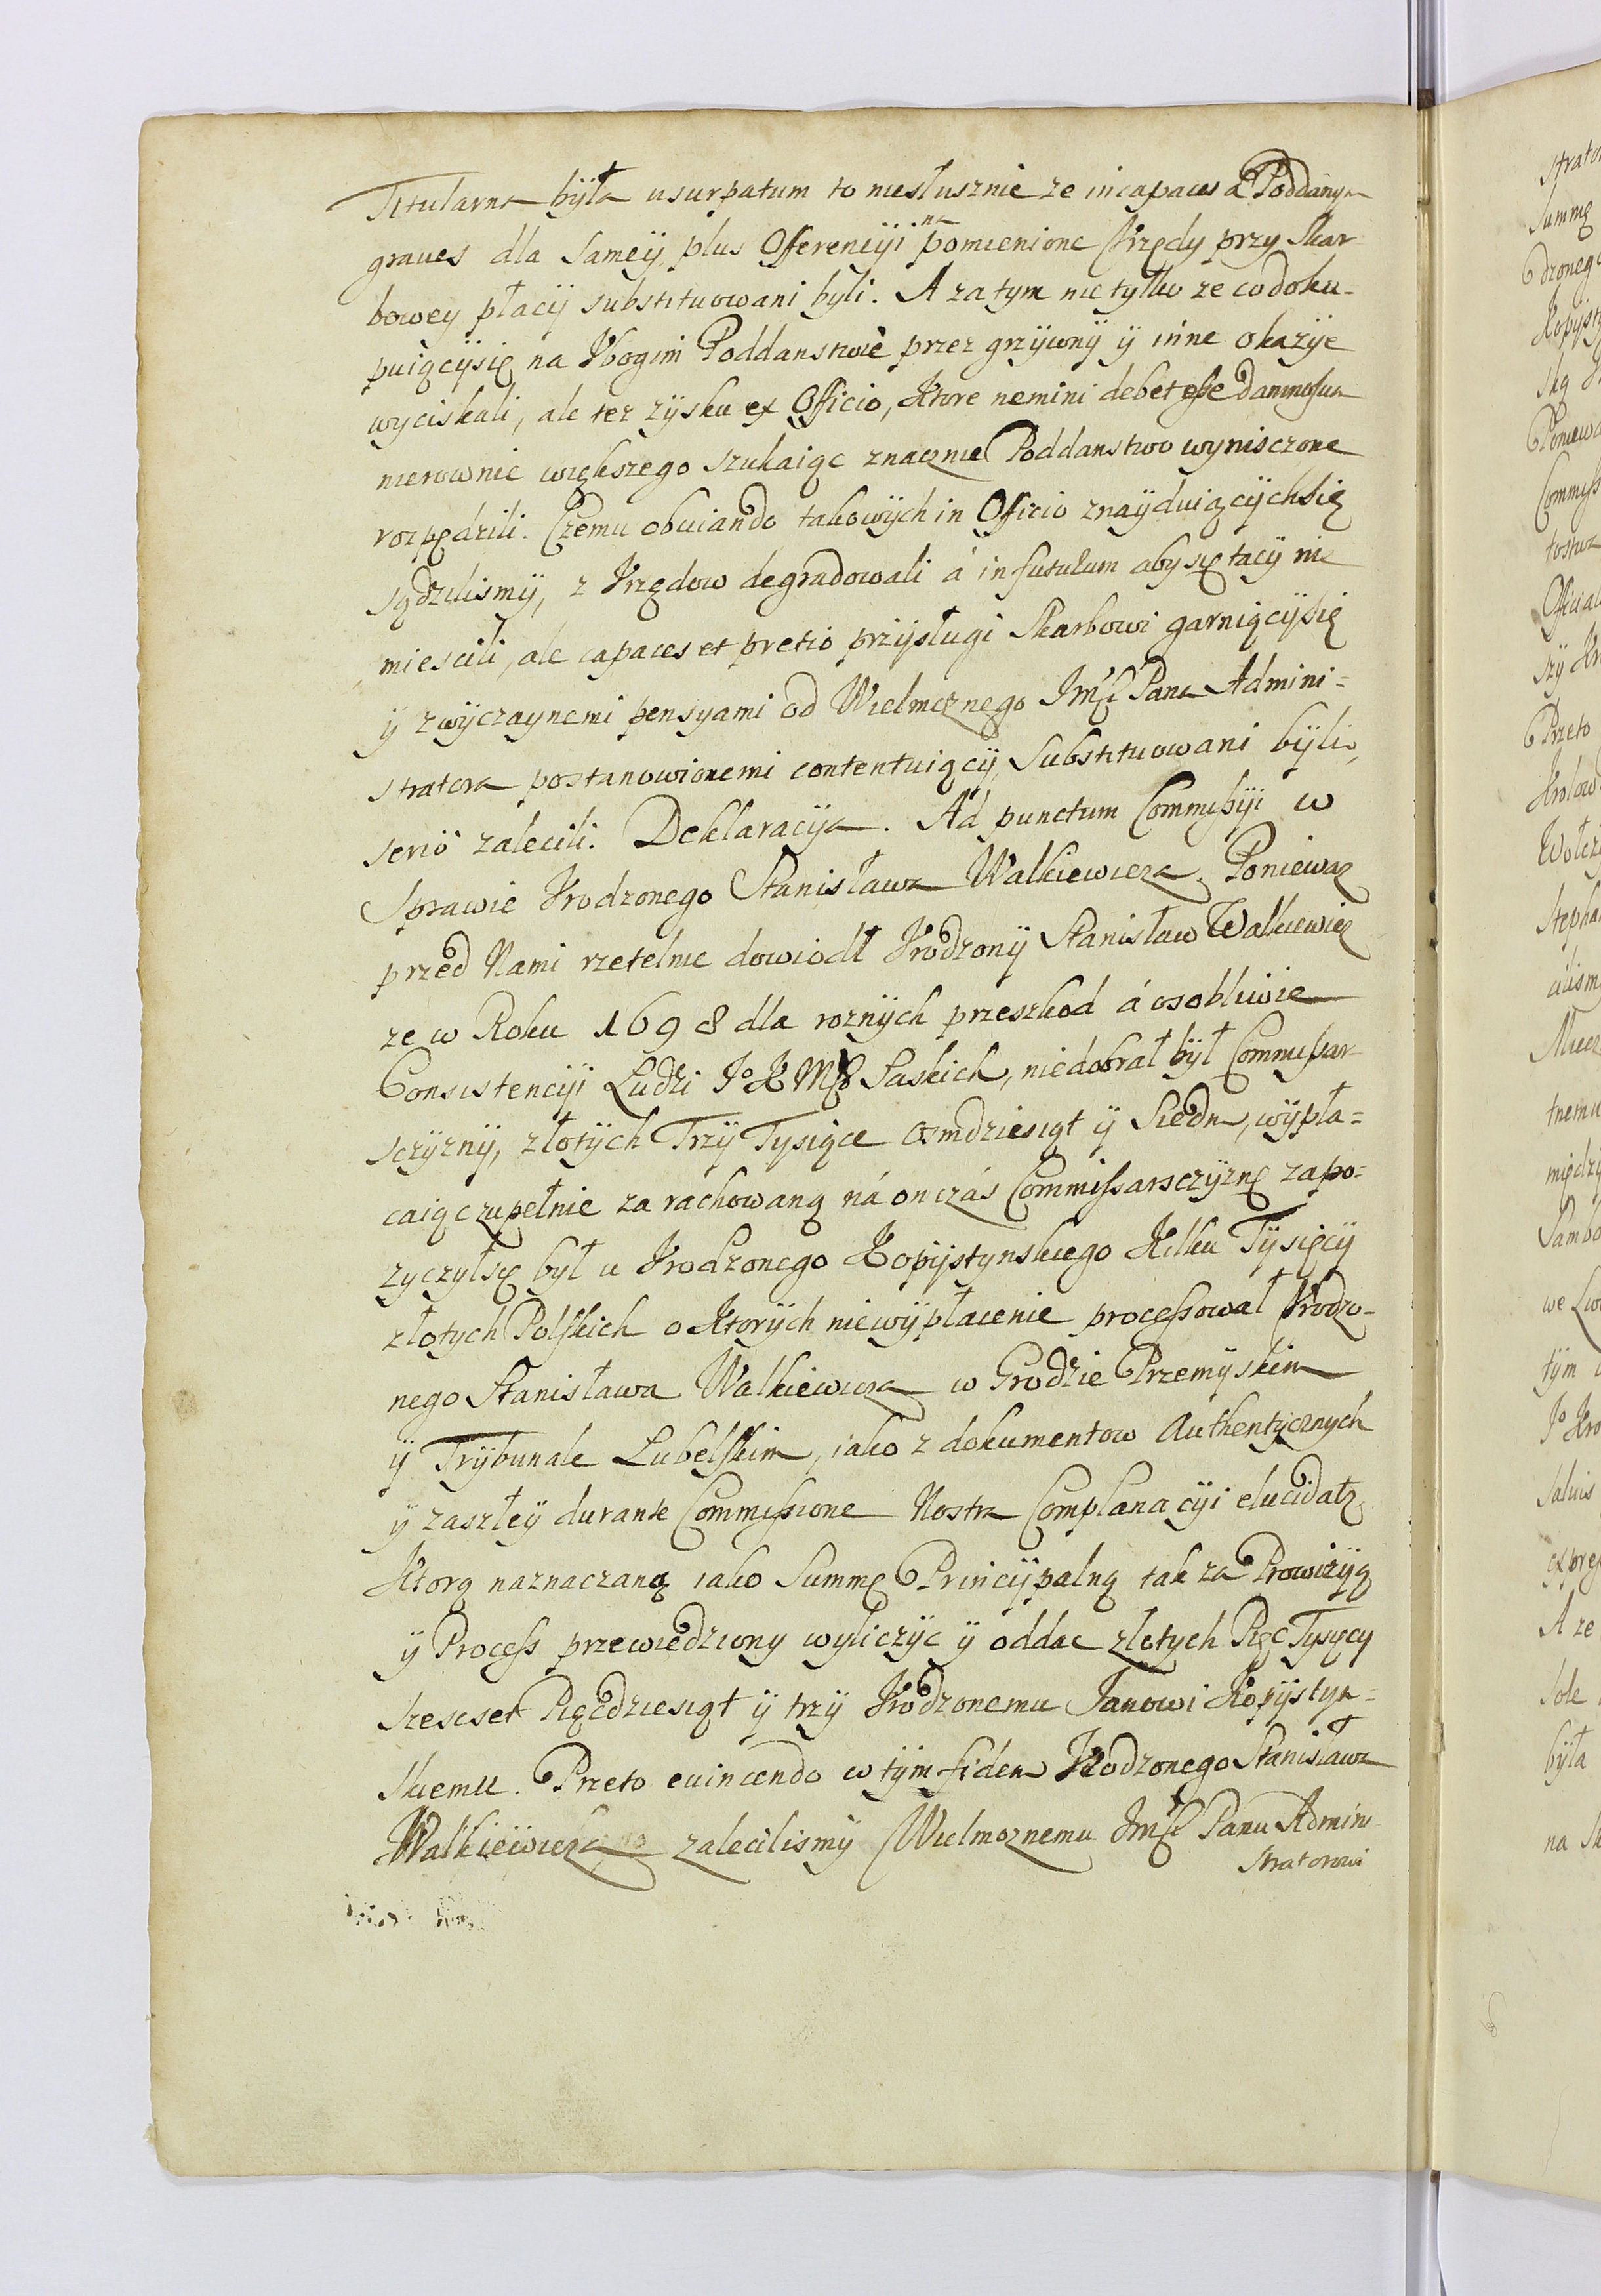 Titularna była usurpatum to niesłusznie ze incapaces a Poddanym
graues dla sameÿ plus Offerencÿi na pomienione Vrzędy przy Skar-
bowey płacÿ substituowani byli. A zatym nie tylko ze co doku-
puiącÿsię na Vbogim Poddanstwie przez grzÿwnÿ ÿ inne okazÿe
wyciskali, ale tez zÿsku ex Officio, Ktore nemini debet esse damnosum
nierownie większego szukaiąc znacznie Poddanstwo wynisczone
rozpędzili. Czemu obuiando takowÿch in Officio znaÿduiącÿchsię
sądzilismÿ, z Vrzędow degradowali á in futurum aby się tacÿ nie
miescili, ale capaces et pretio przÿsługi Skarbowi garniącÿsię
ÿ zwÿczaynemi pensyami od Wielmoznego Jmsć Pana Admini=
stratora postanowionemi contentuiącÿ, Substituowani bÿli,
serió zalecili. Deklaracÿa. Ad punctum Commissÿi w
Sprawie Vrodzonego Stanisława Walkiewicza. Poniewaz
przed Nami rzetelnie dowiodł Vrodzonÿ Stanisław Walkiewicz
ze w Roku 1698 dla roznÿch przeszkod á osobliwie
Consistencÿi Ludzi Jo K Msci Saskich, niedobrał bÿł Commissar-
sczÿznÿ, złotÿch Trzÿ Tysiące osmdziesiąt ÿ Siedm, wÿpła=
caiąc zupełnie zarachowaną ná onczás Commissarsczÿznę zapo=
zyczyłsię był u Vrodzonego Kopÿstynskiego Kilku Tÿsięcÿ
złotych Polskich o Ktorÿch niewÿpłacenie processował Vrodzo-
nego Stanisława Walkiewicza w Grodzie Przemÿskim
ÿ Trÿbunale Lubelskim, iako z dokumentow Authentÿcznych
ÿ zaszłeÿ durante Commissione Nostra Complanacÿi elucidatz
Ktorą naznaczaną iako Summę Principalną tak za Prowizÿą
ÿ Process przewiedziony wyliczÿc ÿ oddac złotych Pięc Tysięcy
szescset Pięcdziesiąt ÿ trzÿ Vrodzonemu Janowi Kopÿstyn=
skiemu. Przeto euincendo w tÿm fidem Vrodzonego Stanisława
Walkiewicza zalecilismÿ Wielmoznemu Jmsć Panu Admini-
stratorowi